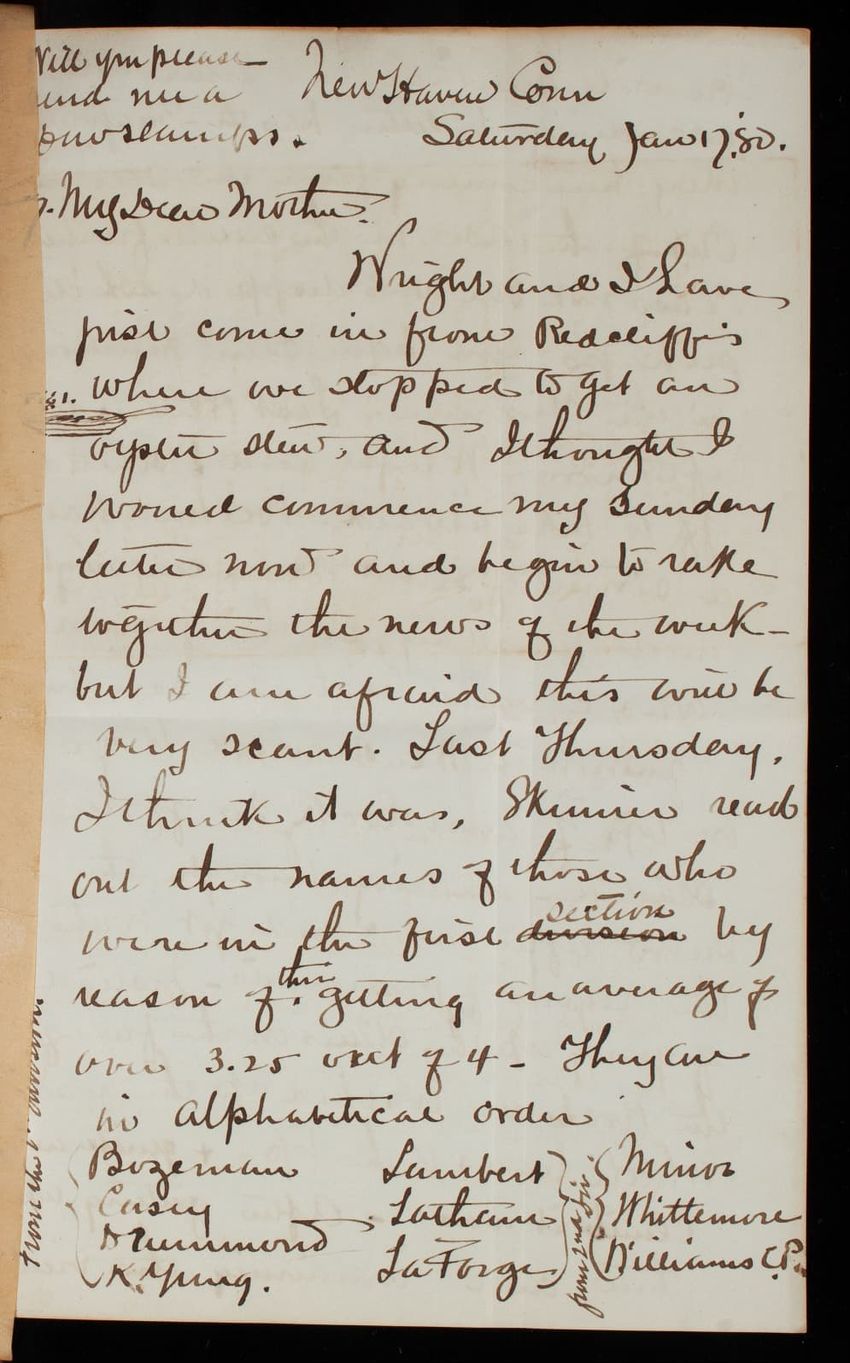 Will you please
send me a
few stamps.
New Haven Conn
Saturday Jan 17, '80.
My Dear Mother.
Wright and I have
just come in from Redcliffe's
where we stopped to get an
oyster stew, and I thought I
would commence my Sunday
letter now and begin to rake
together the news of the week -
but I am afraid this will be
very scant. Last Thursday,
I think it was, Skinner read
out the names of those who
were in the first division section by
reason of their getting an average of
over 3.25 out of 4 - They are
in alphabetical order
Bozeman
Casey
Drummond
K. Yung.
from the 1st division
Lambert
Latham
La Forge
from 2nd div.
Minor
Whittemore
Williams C.P.